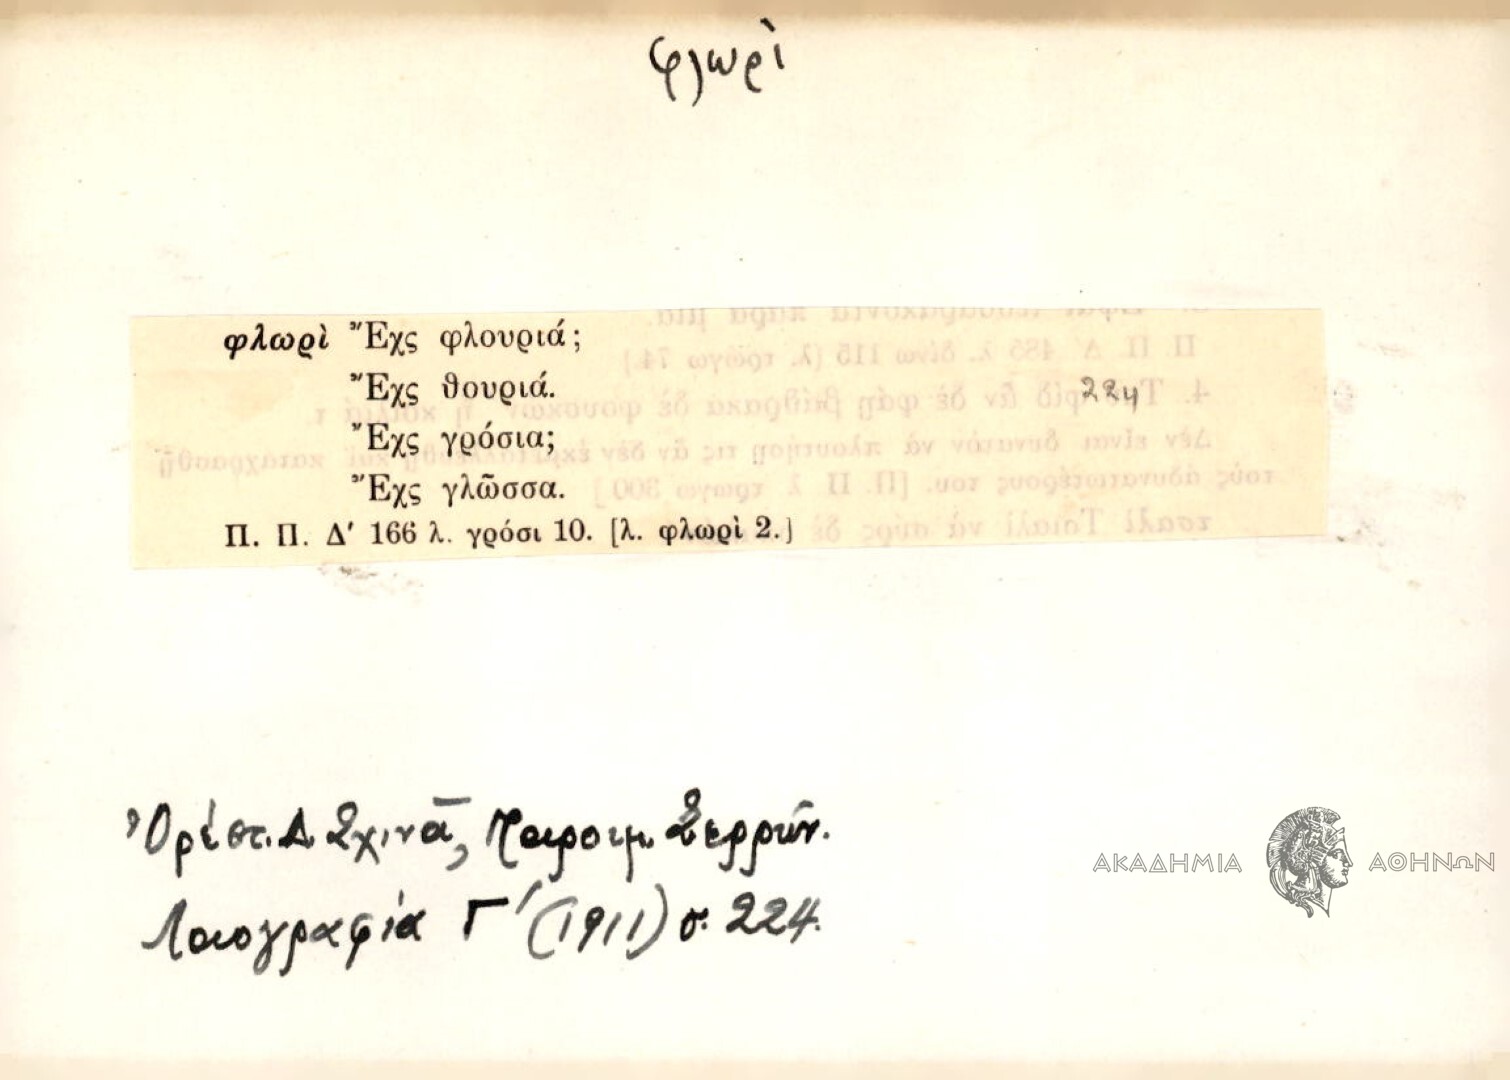 φλωρὶ
φλωρὶ Ἔχς φλουριά;
Ἔχς θουριά.
224
Ἔχς γρόσια;
Ἔχς γλῶσσα.
Π. Π. Δ′ 166 λ. γρόσι 10. [λ. φλωρὶ 2.]
Ὀρέστ. Δ. Σχινᾶ, Παροιμ. Σερρῶν.
Λαογραφία Γ′ (1911) σ. 224.
ΑΚΑΔΗΜΙΑ ΑΘΗΝΩΝ